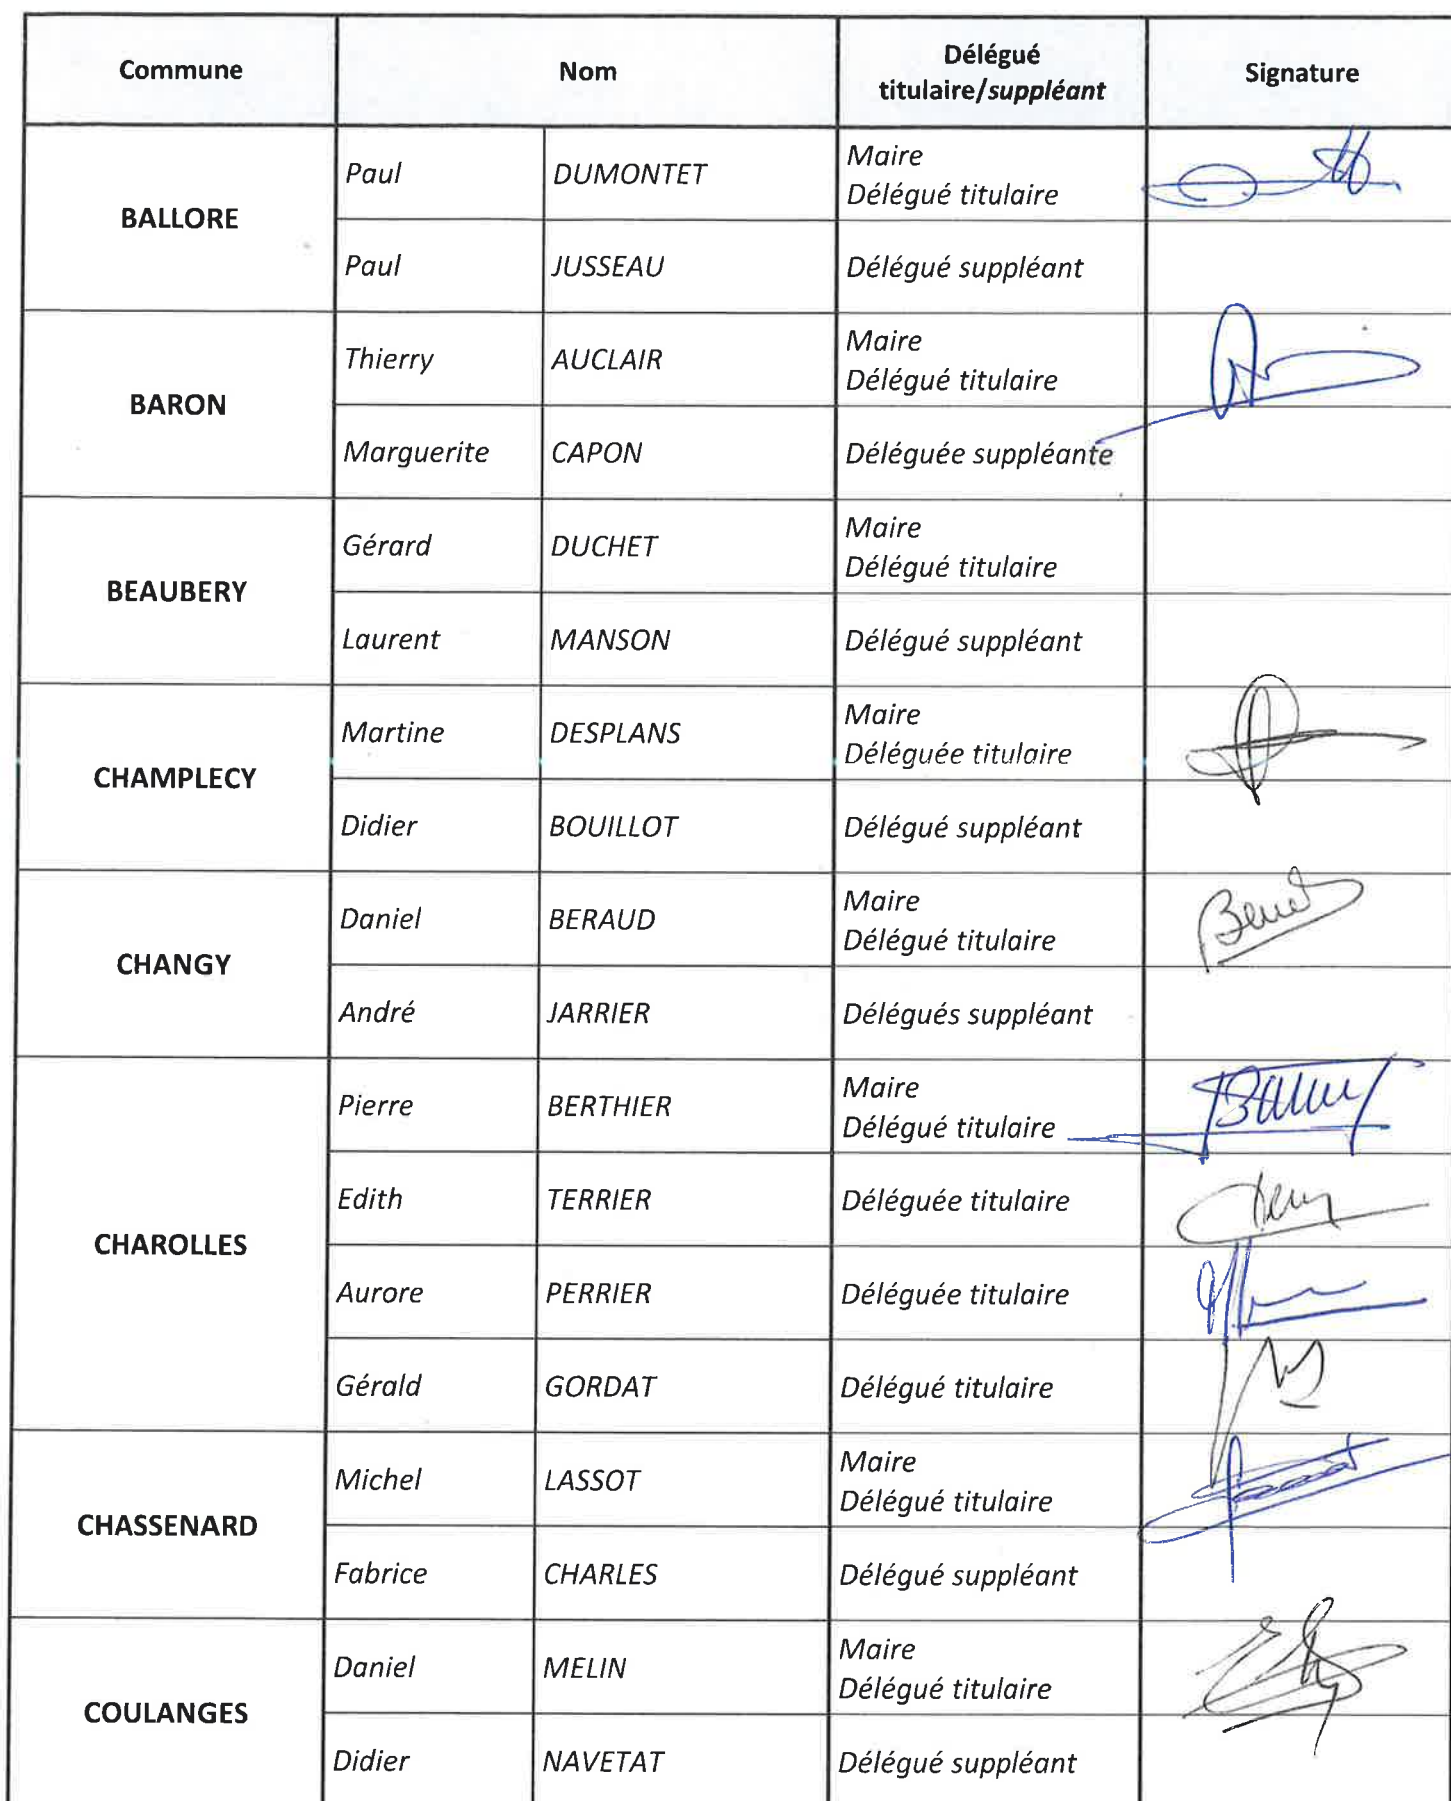 Commune Nom Délégué
titulaire/suppléant Signature
BALLORE
Paul DUMONTET Maire
Délégué titulaire
Paul JUSSEAU Délégué suppléant
BARON
Thierry AUCLAIR Maire
Délégué titulaire
Marguerite CAPON Déléguée suppléante
BEAUBERY
Gérard DUCHET Maire
Délégué titulaire
Laurent MANSON Délégué suppléant
CHAMPLECY
Martine DESPLANS Maire
Déléguée titulaire
Didier BOUILLOT Délégué suppléant
CHANGY
Daniel BERAUD Maire
Délégué titulaire
André JARRIER Délégués suppléant
CHAROLLES
Pierre BERTHIER Maire
Délégué titulaire
Edith TERRIER Déléguée titulaire
Aurore PERRIER Déléguée titulaire
Gérald GORDAT Délégué titulaire
CHASSENARD
Michel LASSOT Maire
Délégué titulaire
Fabrice CHARLES Délégué suppléant
COULANGES
Daniel MELIN Maire
Délégué titulaire
Didier NAVETAT Délégué suppléant